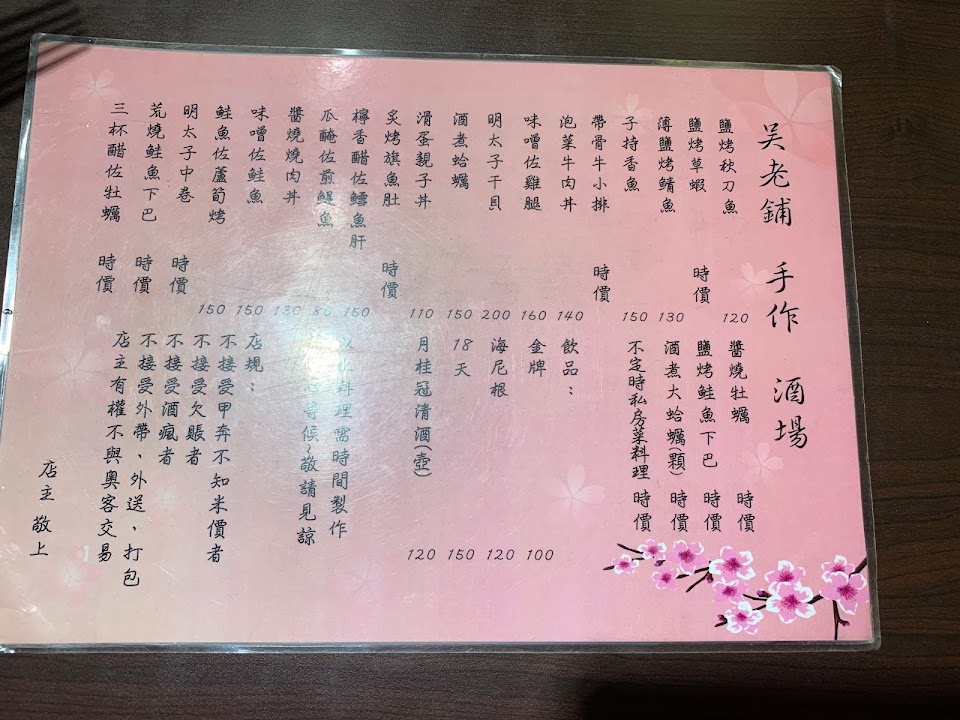 吳老鋪 手作 酒場
鹽烤秋刀魚 120
鹽烤草蝦 時價
薄鹽烤鯖魚 130
子持香魚 150
帶骨牛小排 時價
泡菜牛肉丼 140
味噌佐雞腿 160
明太子干貝 200
酒煮蛤蠣 150
滑蛋親子丼 110
炙烤旗魚肚 時價
檸香醋佐鱈魚肝 150
瓜醃佐煎鯷魚 80
醬燒燒肉丼 130
味噌佐鮭魚 150
鮭魚佐蘆筍烤 150
明太子中卷 時價
荒燒鮭魚下巴 時價
三杯醋佐牡蠣 時價
醬燒牡蠣 時價
鹽烤鮭魚下巴 時價
酒煮大蛤蠣(顆) 時價
不定時私房菜料理 時價
飲品：
金牌 100
海尼根 120
18天 150
月桂冠清酒(壺) 120
料理需時間製作
心等候~敬請見諒
店規：
不接受甲奔不知米價者
不接受欠賬者
不接受酒瘋者
不接受外帶、外送，打包
店主有權不與奧客交易
店主 敬上